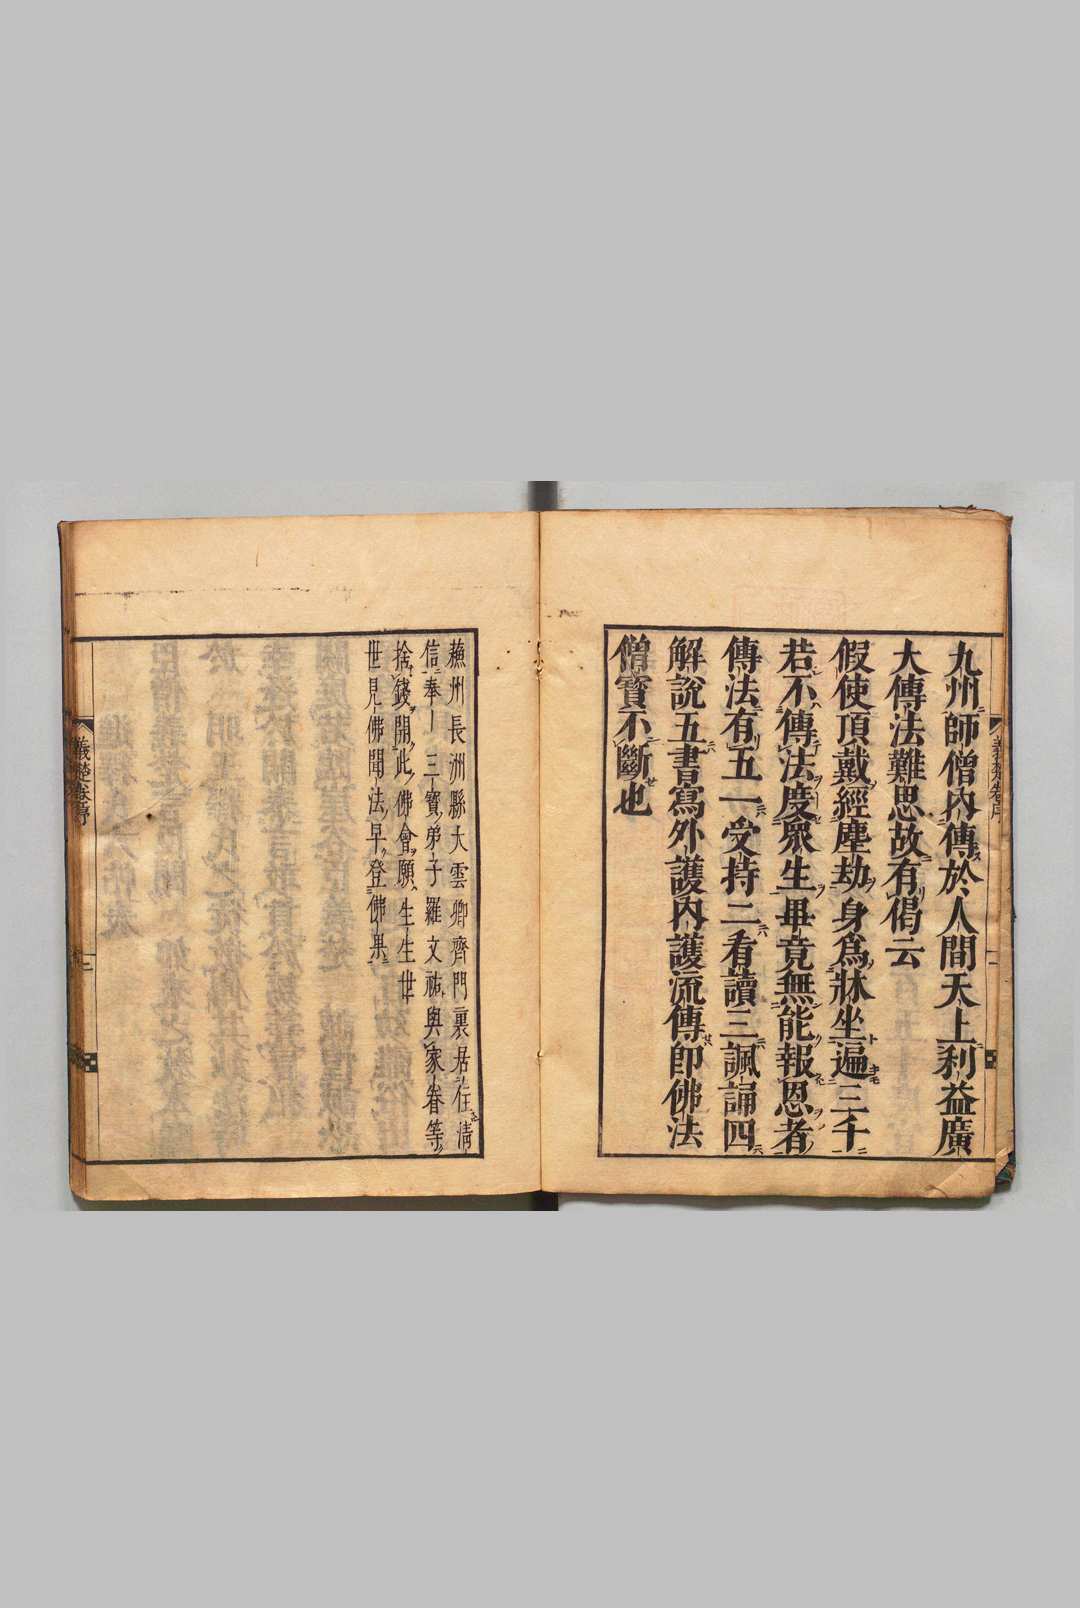 九州師僧內傳於人間天上利益廣
大傳法難思故有偈云
假使頂戴經塵劫身爲牀坐遍三千
若不傳法度衆生畢竟無能報恩者
傳法有五一受持二看讀三諷誦四
解說五書寫外護內護流傳即佛法
僧寶不斷也
蘇州長洲縣大雲鄉齊門裏居住清
信奉三寶弟子羅文祐與家眷等
捨錢開此佛會願生生世
世見佛聞法早登佛果
義楚卷序